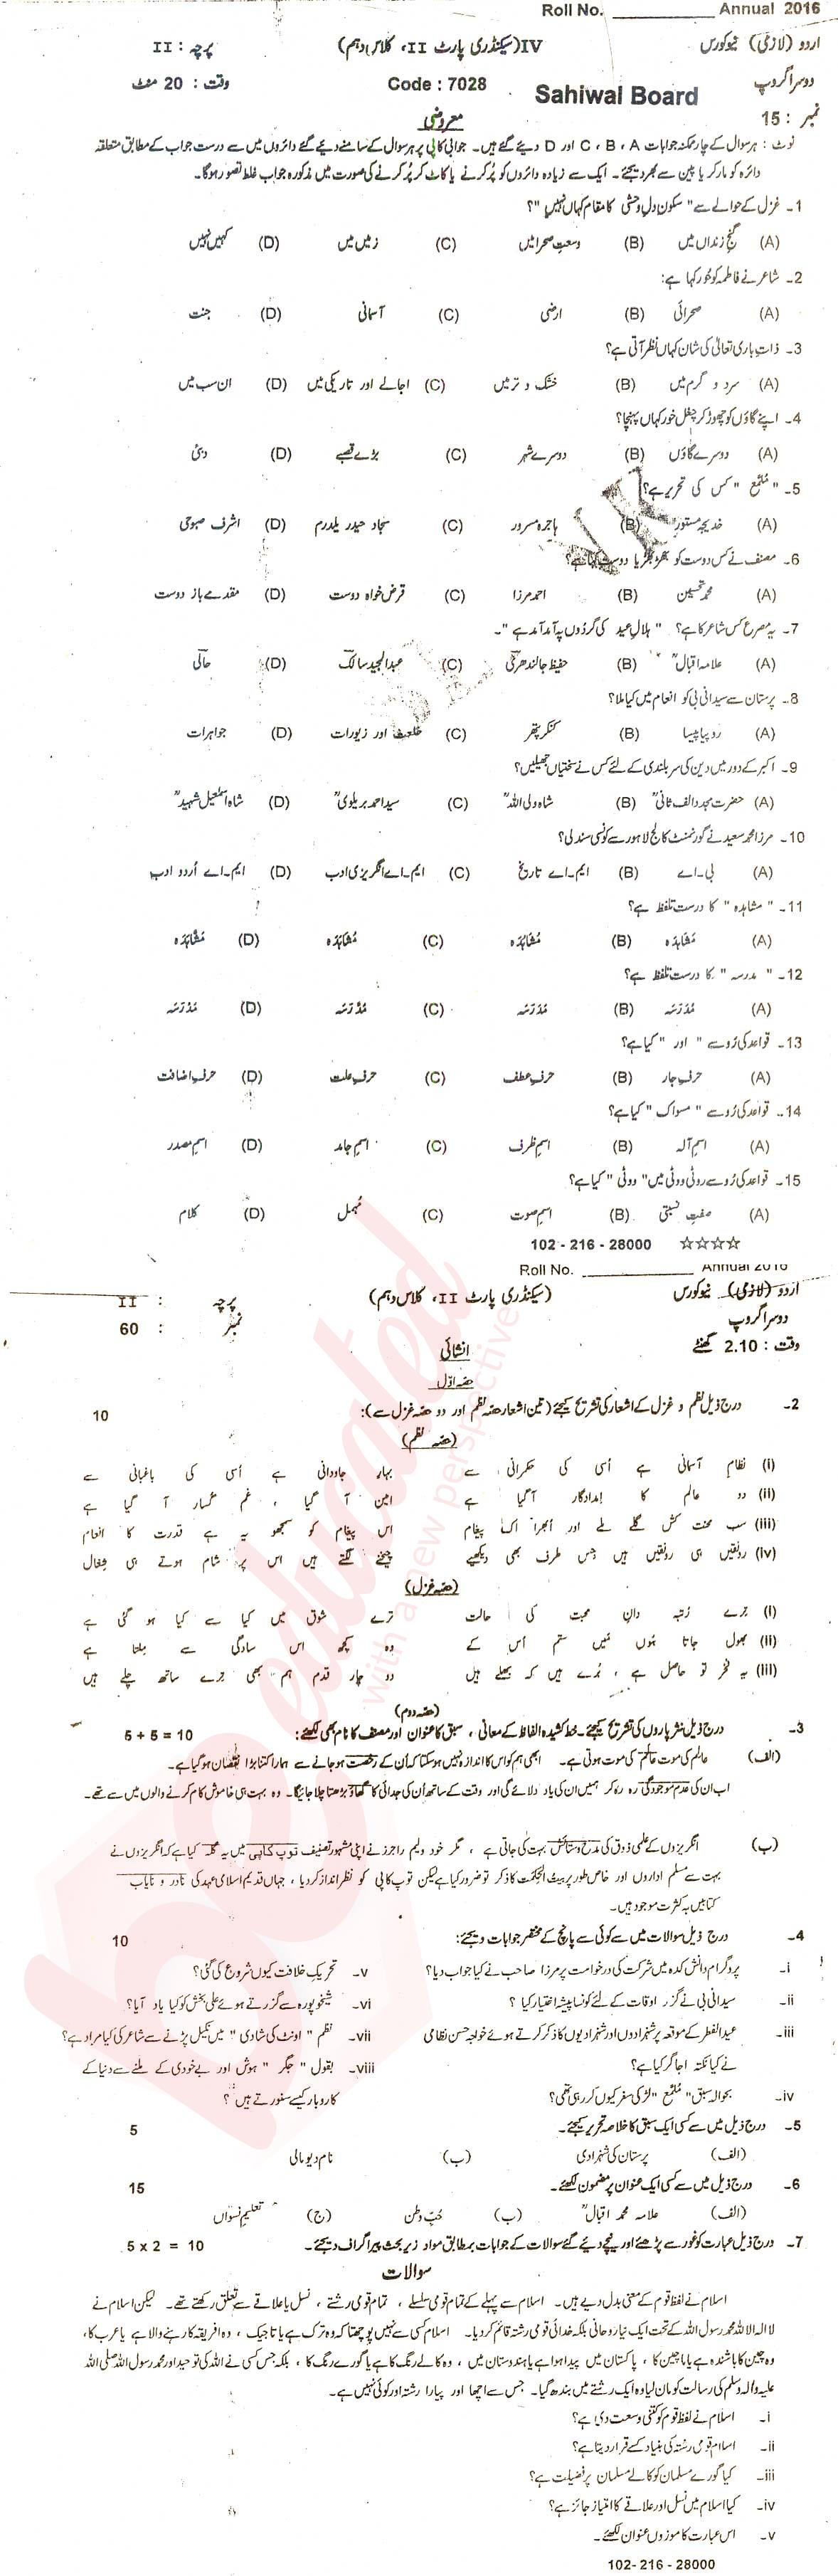 Roll No. ____________ Annual 2016
اردو (لازمی) نیوکورس IV(سیکنڈری پارٹ II، کلاس دہم) پرچہ : II
دوسرا گروپ Sahiwal Board Code : 7028 وقت : 20 منٹ
نمبر : 15
معروضی
نوٹ : ہر سوال کے چار ممکنہ جوابات A ، B ، C اور D دیئے گئے ہیں۔ جوابی کاپی پر ہر سوال کے سامنے دیئے گئے دائروں میں سے درست جواب کے مطابق متعلقہ
دائرہ کو مارکر یا پین سے بھر دیجئے۔ ایک سے زیادہ دائروں کو پُر کرنے یا کاٹ کر پُر کرنے کی صورت میں مذکورہ جواب غلط تصور ہوگا۔
1۔ غزل کے حوالے سے "سکون دلِ وحشی کا مقام کہاں نہیں"؟
(A) کنجِ زنداں میں (B) وسعتِ صحرا میں (C) زمیں میں (D) کہیں نہیں
2۔ شاعر نے فاطمہ کو حُور کہا ہے:
(A) صحرائی (B) ارضی (C) آسمانی (D) جنت
3۔ ذاتِ باری تعالیٰ کی شان کہاں نظر آتی ہے؟
(A) سرد و گرم میں (B) خشک و تر میں (C) اجالے اور تاریکی میں (D) ان سب میں
4۔ اپنے گاؤں کو چھوڑ کر چغل خور کہاں پہنچا؟
(A) دوسرے گاؤں (B) دوسرے شہر (C) بڑے قصبے (D) دبئی
5۔ "مُلمّع" کس کی تحریر ہے؟
(A) خدیجہ مستور (B) ہاجرہ مسرور (C) سجاد حیدر یلدرم (D) اشرف صبوحی
6۔ مصنف نے کس دوست کو بھڑبھڑیا دوست کہا ہے؟
(A) محمد تحسین (B) احمد مرزا (C) قرض خواہ دوست (D) مقدمے باز دوست
7۔ یہ مصرع کس شاعر کا ہے؟ "ہلالِ عید کی گردُوں پہ آمد آمد ہے"۔
(A) علامہ اقبالؒ (B) حفیظ جالندھری (C) عبدالمجید سالک (D) حالی
8۔ پرستان سے سیدانی بی کو انعام میں کیا ملا؟
(A) روپیا پیسا (B) کنکر پتھر (C) خلعت اور زیورات (D) جواہرات
9۔ اکبر کے دور میں دین کی سربلندی کے لئے کس نے سختیاں جھیلیں؟
(A) حضرت مجدد الف ثانیؒ (B) شاہ ولی اللہؒ (C) سید احمد بریلویؒ (D) شاہ اسمٰعیل شہیدؒ
10۔ مرزا محمد سعید نے گورنمنٹ کالج لاہور سے کونسی سند لی؟
(A) بی۔اے (B) ایم۔اے تاریخ (C) ایم۔اے انگریزی ادب (D) ایم۔اے اُردو ادب
11۔ "مشاہدہ" کا درست تلفظ ہے؟
(A) (B) (C) (D)
12۔ "مدرسہ" کا درست تلفظ ہے؟
(A) (B) (C) (D)
13۔ قواعد کی رُو سے "اور" کیا ہے؟
(A) حرفِ جار (B) حرفِ عطف (C) حرفِ علت (D) حرفِ اضافت
14۔ قواعد کی رُو سے "مسواک" کیا ہے؟
(A) اسمِ آلہ (B) اسمِ ظرف (C) اسمِ جامد (D) اسمِ مصدر
15۔ قواعد کی رُو سے روٹی ووٹی میں "ووٹی" کیا ہے؟
(A) صفتِ نسبتی (B) اسمِ صوت (C) مُہمل (D) کلام
102 - 216 - 28000 ☆☆☆☆
Roll No. ____________ Annual 2016
اردو (لازمی) نیوکورس (سیکنڈری پارٹ II، کلاس دہم) پرچہ : II
دوسرا گروپ نمبر : 60
وقت : 2.10 گھنٹے
انشائی
حصّہ اوّل
2۔ درج ذیل نظم و غزل کے اشعار کی تشریح کیجئے (تین اشعار حصّہ نظم اور دو حصّہ غزل سے): 10
(حصّہ نظم)
(i) نظامِ آسمانی ہے اُسی کی حکمرانی سے بہارِ جاودانی ہے اُسی کی باغبانی سے
(ii) دو عالم کا امدادگار آ گیا ہے امین آ گیا ، غم گسار آ گیا ہے
(iii) سب محنت کش گلے ملے اور اُبھرا اک پیغام اس پیغام کو سمجھو یہ ہے قدرت کا انعام
(iv) رونقیں ہی رونقیں ہیں جس طرف بھی دیکھیے چیخنے لگتے ہیں اس پر شام ہوتے ہی شغال
(حصّہ غزل)
(i) ترے رُتبہ دانِ محبت کی حالت ترے شوق میں کیا سے کیا ہو گئی ہے
(ii) بھول جاتا ہُوں میں ستم اُس کے وہ کچھ اس سادگی سے ملتا ہے
(iii) یہ فخر تو حاصل ہے ، بُرے ہیں کہ بھلے ہیں دو چار قدم ہم بھی ترے ساتھ چلے ہیں
(حصّہ دوم)
3۔ درج ذیل نثرپاروں کی تشریح کیجئے۔ خط کشیدہ الفاظ کے معانی ، سبق کا عنوان اور مصنف کا نام بھی لکھئے: 5 + 5 = 10
(الف) عالِم کی موت عالَم کی موت ہوتی ہے۔ ابھی ہم کو اس کا اندازہ نہیں ہوسکتا کہ اُن کے رخصت ہو جانے سے ہمارا کتنا بڑا نقصان ہوگیا ہے۔
اب ان کی عدم موجودگی رہ رہ کر ہمیں ان کی یاد دلائے گی اور وقت کے ساتھ اُن کی جدائی کا گھاؤ بڑھتا چلا جائیگا۔ وہ بہت ہی خاموش کام کرنے والوں میں سے تھے۔
(ب) انگریزوں کے علمی ذوق کی مدح و ستائش بہت کی جاتی ہے ، مگر خود ولیم راجرز نے اپنی مشہور تصنیف توپ کاپی میں یہ گلہ کیا ہے کہ انگریزوں نے
بہت سے مسلم اداروں اور خاص طور پر بیت الحکمت کا ذکر تو ضرور کیا ہے لیکن توپ کاپی کو نظر انداز کر دیا ، جہاں قدیم اسلامی عہد کی نادر و نایاب
کتابیں بہ کثرت موجود ہیں۔
4۔ درج ذیل سوالات میں سے کوئی سے پانچ کے مختصر جوابات دیجئے: 10
i۔ پروگرام دانش کدہ میں شرکت کی درخواست پر مرزا صاحب نے کیا جواب دیا؟ v۔ تحریکِ خلافت کیوں شروع کی گئی؟
ii۔ سیدانی بی نے گزر اوقات کے لئے کونسا پیشہ اختیار کیا ؟ vi۔ شیخوپورہ سے گزرتے ہوئے علی بخش کو کیا یاد آیا؟
iii۔ عید الفطر کے موقعہ پر شہزادوں اور شہزادیوں کا ذکر کرتے ہوئے خواجہ حسن نظامی vii۔ نظم "اونٹ کی شادی" میں نکیل پڑنے سے شاعر کی کیا مراد ہے؟
نے کیا نکتہ اجاگر کیا ہے؟ viii۔ بقول "جگر" ہوش اور بے خودی کے ملنے سے دنیا کے
iv۔ بحوالہ سبق "مُلمّع" لڑکی سفر کیوں کر رہی تھی؟ کاروبار کیسے سنورتے ہیں ؟
5۔ درج ذیل میں سے کسی ایک سبق کا خلاصہ تحریر کیجئے۔ 5
(الف) پرستان کی شہزادی (ب) نام دیو مالی
6۔ درج ذیل میں سے کسی ایک عنوان پر مضمون لکھئے۔ 15
(الف) علامہ محمد اقبالؒ (ب) حُبِّ وطن (ج) تعلیمِ نسواں
7۔ درج ذیل عبارت کو غور سے پڑھئے اور نیچے دیئے گئے سوالات کے جوابات بمطابق مواد زیرِ بحث پیراگراف دیجئے۔ 5 x 2 = 10
سوالات
اسلام نے لفظ قوم کے معنی بدل دیے ہیں۔ اسلام سے پہلے کے تمام قومی سلسلے ، تمام قومی رشتے ، نسل یا علاقے سے تعلق رکھتے تھے۔ لیکن اسلام نے
لا الہ الا اللہ محمد رسول اللہ کے تحت ایک نیا روحانی بلکہ خدائی قومی رشتہ قائم کر دیا۔ اسلام کسی سے نہیں پوچھتا کہ وہ ترک ہے یا تاجیک ، وہ افریقہ کا رہنے والا ہے یا عرب کا،
وہ چین کا باشندہ ہے یا ماچین کا ، پاکستان میں پیدا ہوا ہے یا ہندوستان میں ، وہ کالے رنگ کا ہے یا گورے رنگ کا ، بلکہ جس کسی نے اللہ کی توحید اور محمد رسول اللہ صلی اللہ
علیہ والہ وسلم کی رسالت کو مان لیا وہ ایک رشتے میں بندھ گیا۔ جس سے اچھا اور پیارا رشتہ اور کوئی نہیں ہے۔
i۔ اسلام نے لفظ قوم کو کتنی وسعت دی ہے؟
ii۔ اسلام قومی رشتہ کی بنیاد کسے قرار دیتا ہے؟
iii۔ کیا گورے مسلمان کو کالے مسلمان پر فضیلت ہے؟
iv۔ کیا اسلام میں نسل اور علاقے کا امتیاز جائز ہے؟
v۔ اس عبارت کا موزوں عنوان لکھئے۔
102- 216 - 28000
beeducated
with a new perspective